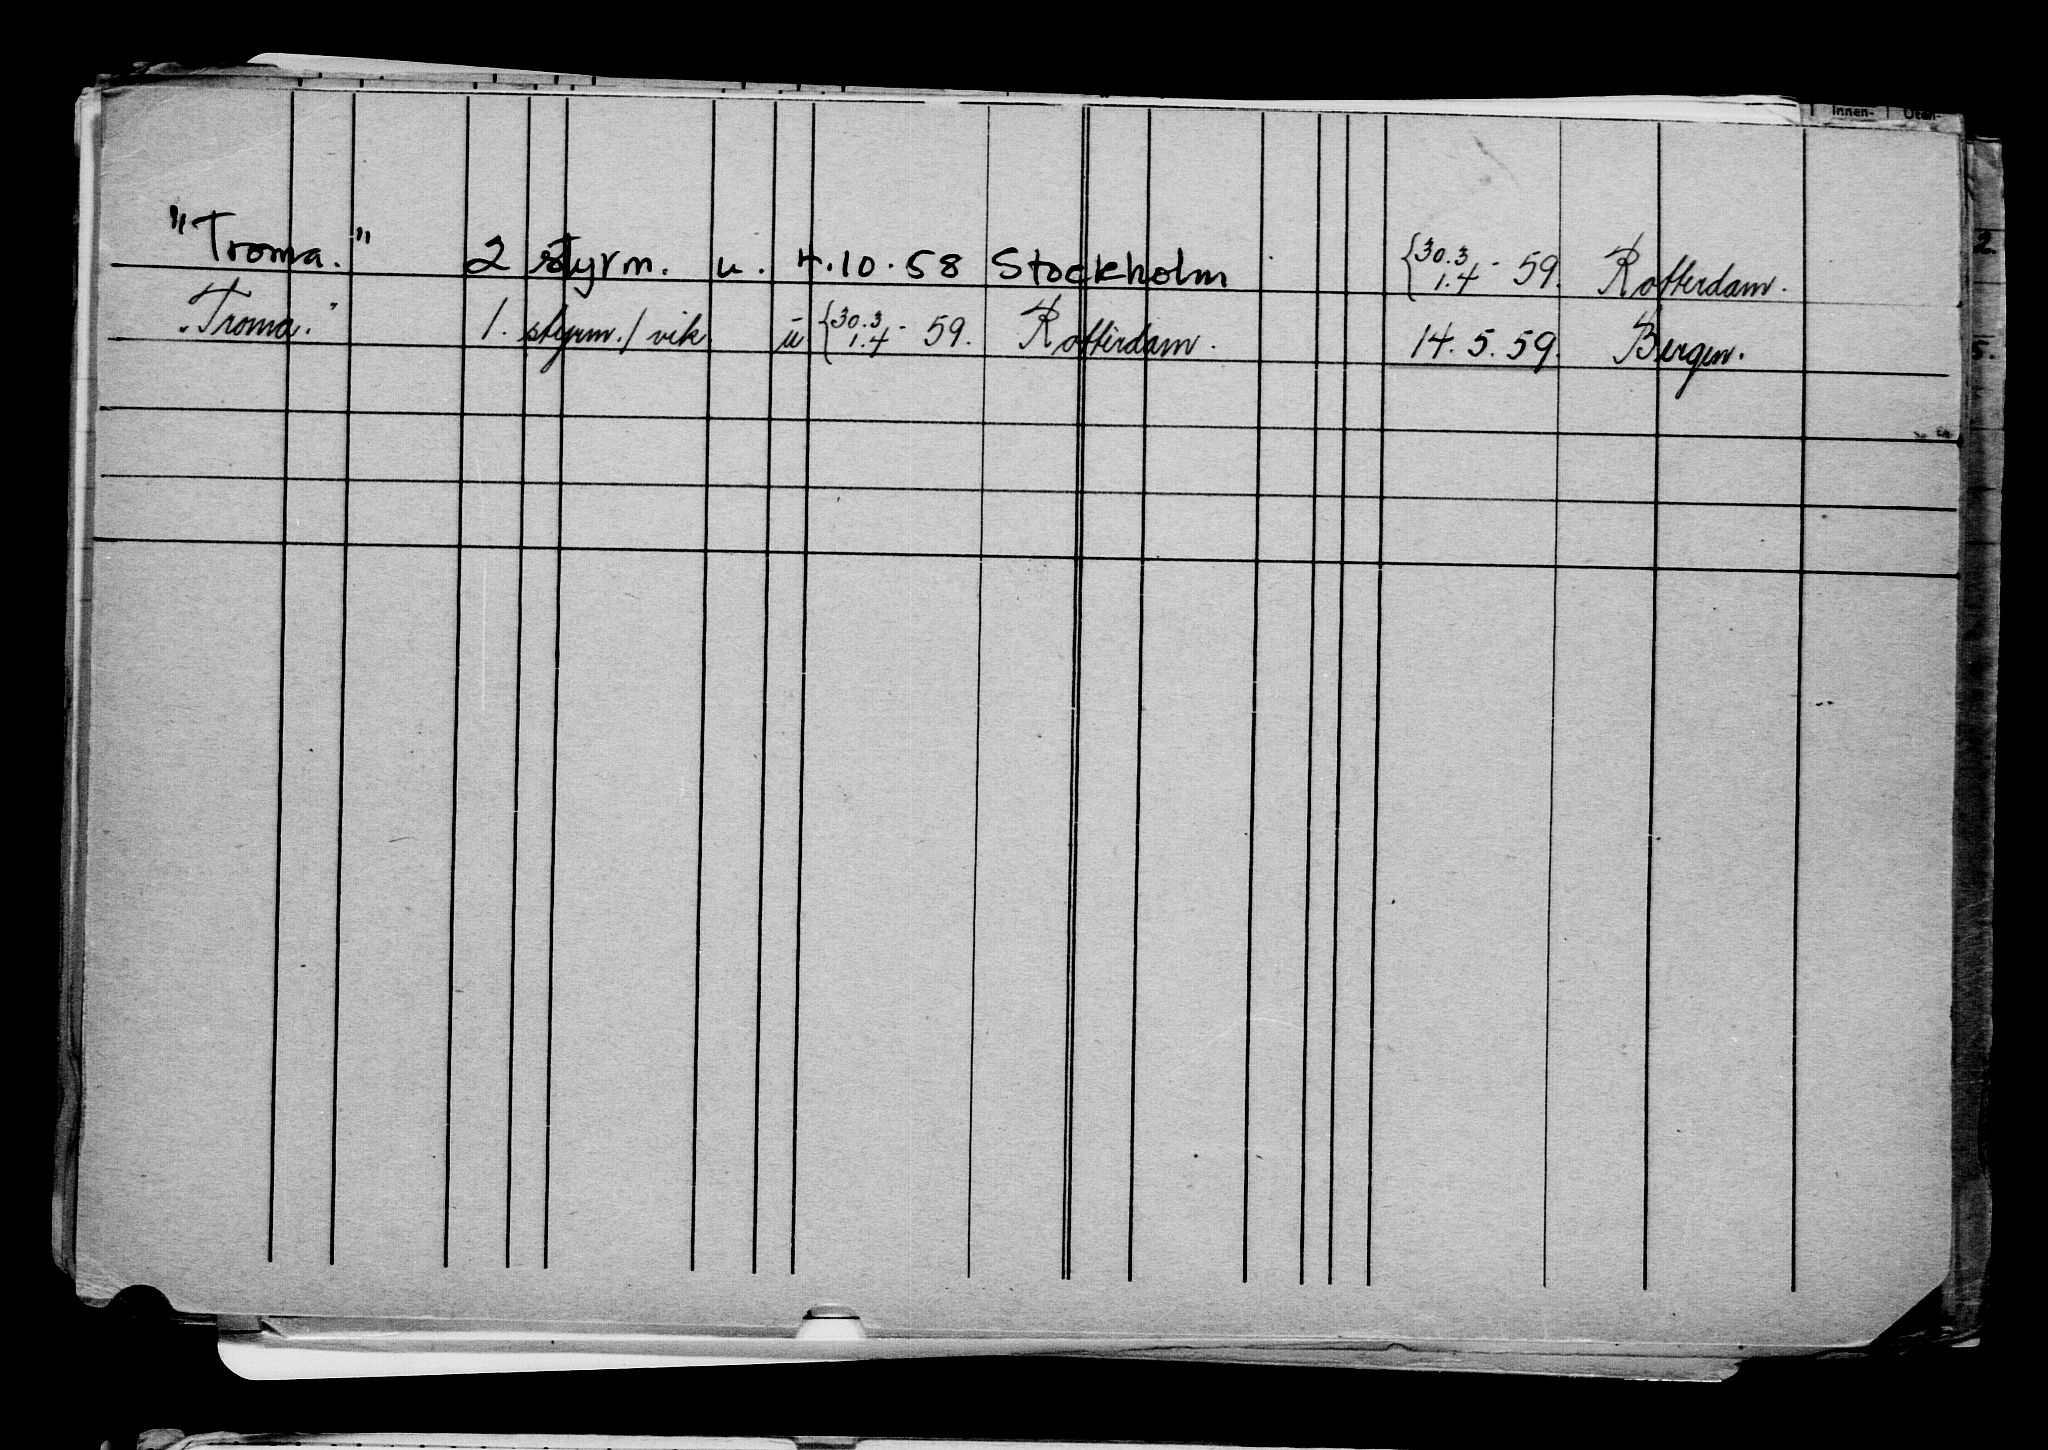 Innen- Uten-
"Troma." 2 styrm. u. 4.10.58 Stockholm {30.3 1.4 - 59. Rotterdam. 2.
"Troma." 1. styrm./vik. u {30.3 1.4 - 59. Rotterdam. 14.5.59. Bergen. 5.